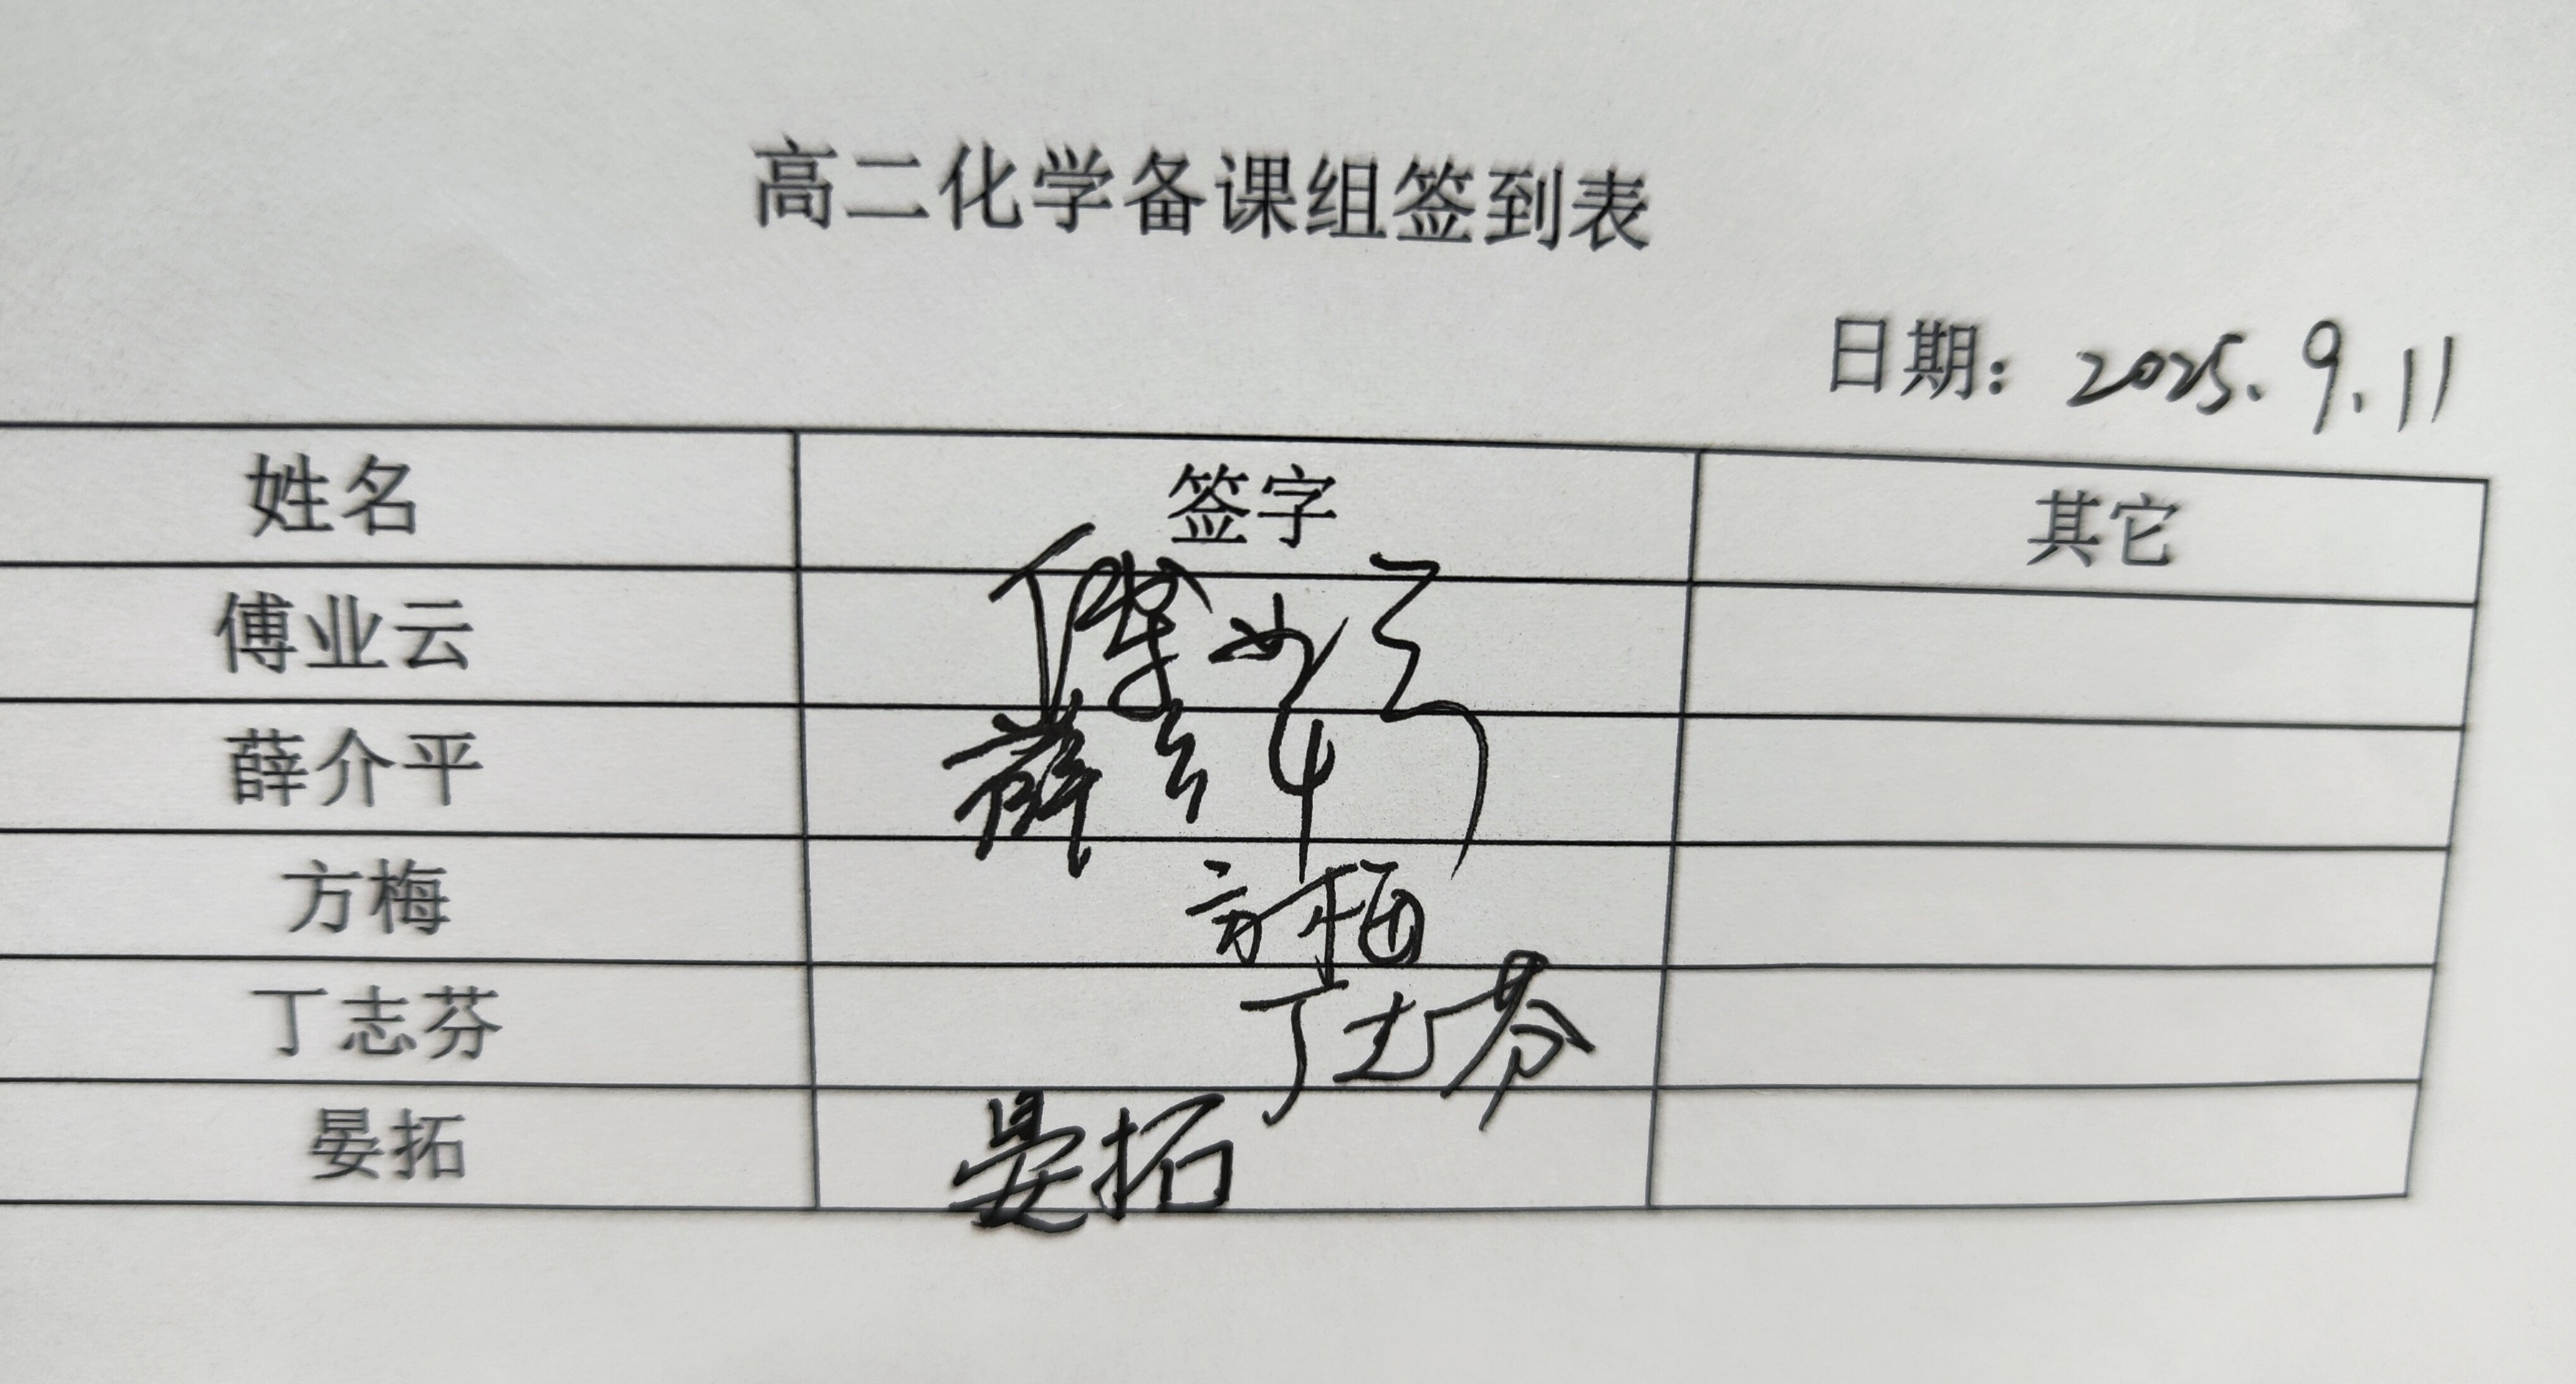 高二化学备课组签到表
日期：2025.9.11
姓名 签字 其它
傅业云 傅业云
薛介平 薛介平
方梅 方梅
丁志芬 丁志芬
晏拓 晏拓